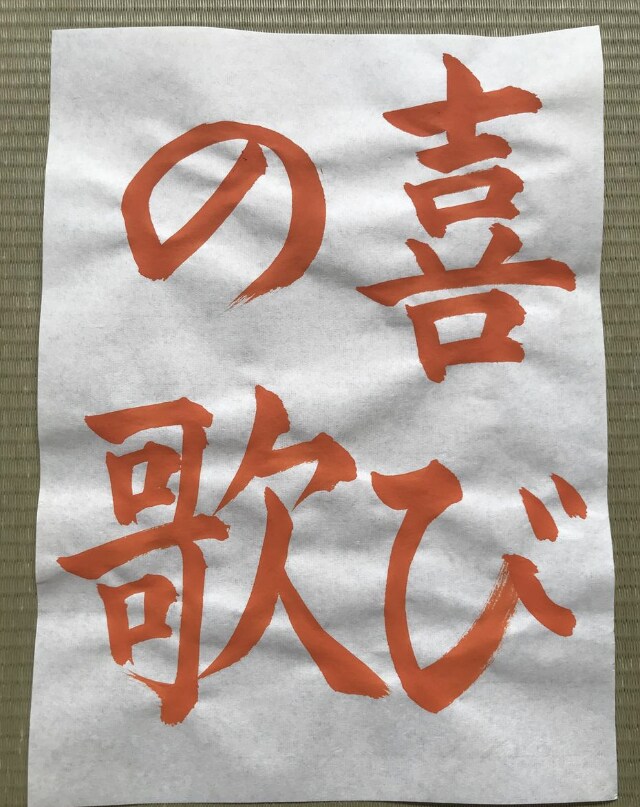 喜び
の歌